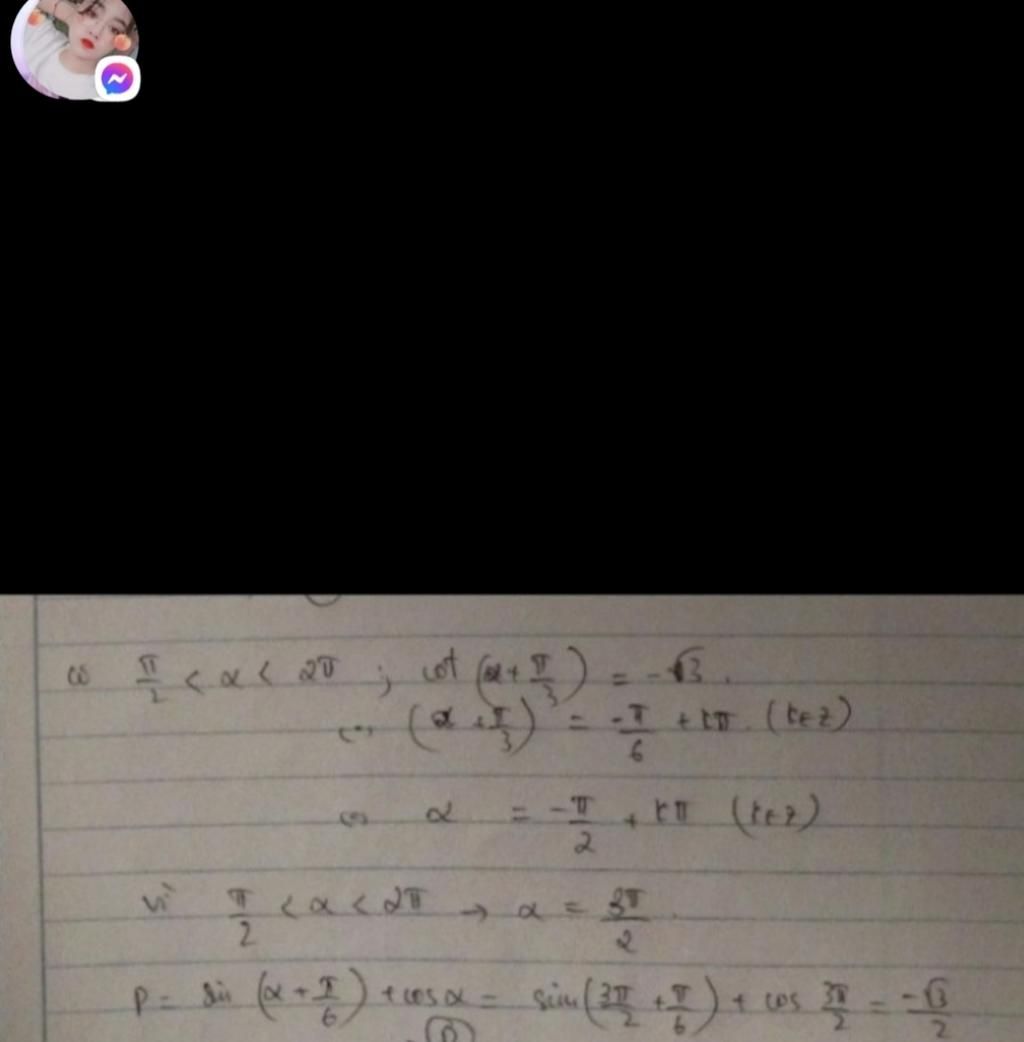 có π/2 < α < 2π ; cot (α + π/3) = -√3.
<=> (α + π/3) = -π/6 + kπ. (k∈Z)
<=> α = -π/2 + kπ (k∈Z)
Vì π/2 < α < 2π → α = 3π/2
P = sin (α + π/6) + cos α = sin(3π/2 + π/6) + cos 3π/2 = -√3/2